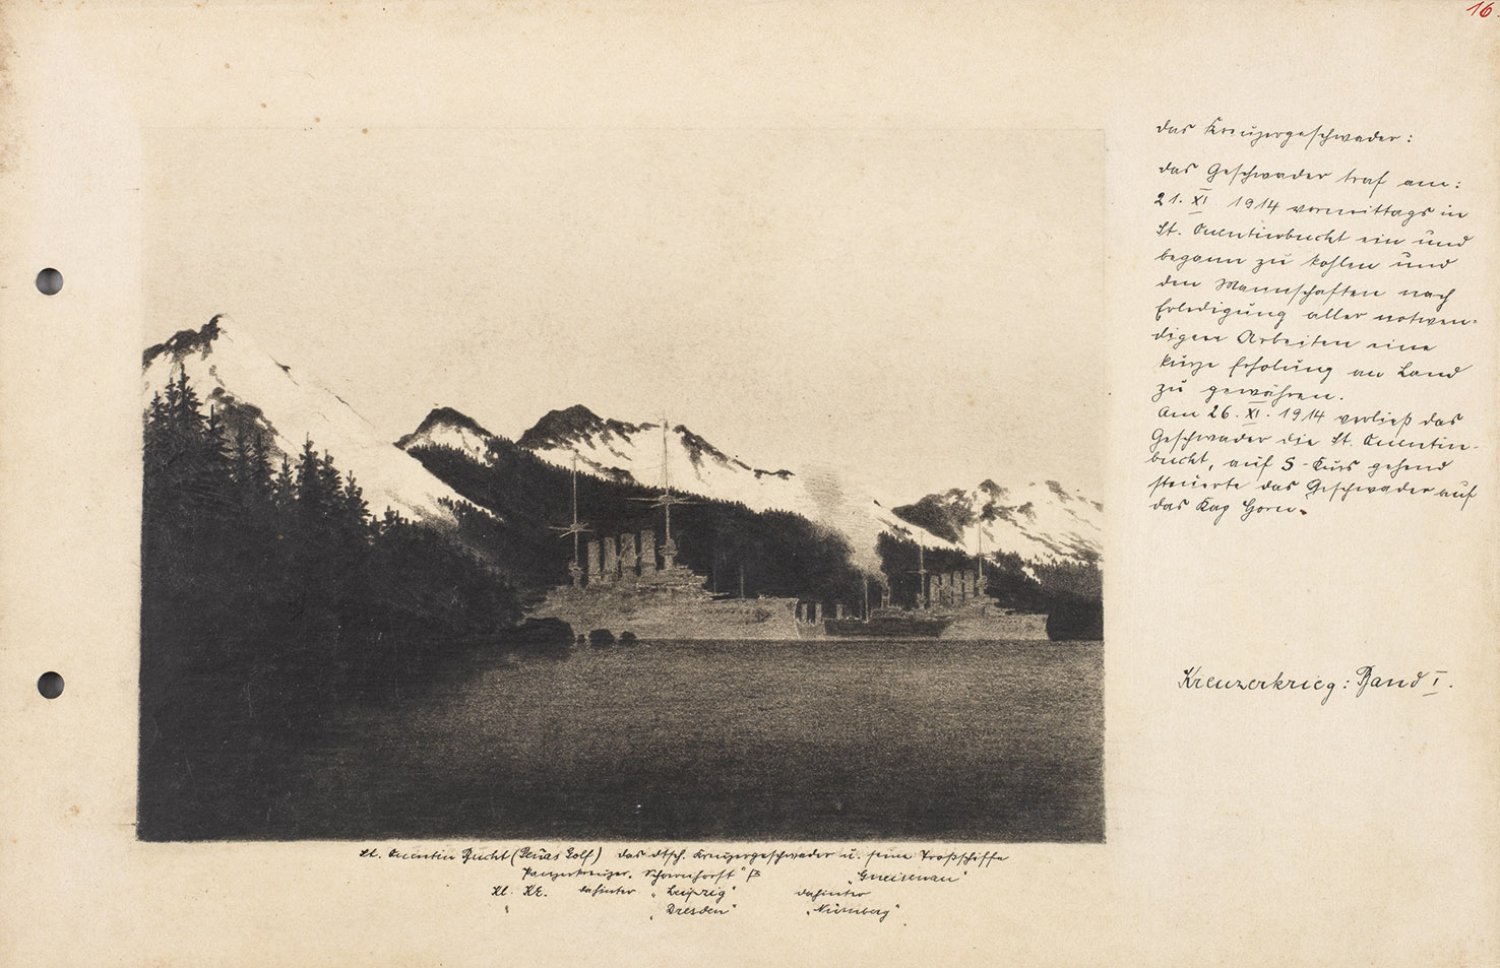 16
das Kreuzergeschwader:
das Geschwader traf am:
21. XI 1914 vormittags in
St. Quentinbucht ein und
begann zu kohlen und
den Mannschaften nach
Erledigung aller notwen-
digen Arbeiten eine
kurze Erholung an Land
zu gewähren.
Am 26. XI. 1914 verließ das
Geschwader die St. Quentin-
bucht, auf S-Kurs gehend
steuerte das Geschwader auf
das Kap Horn.
Kreuzerkrieg: Band I.
St. Quentin Bucht (Penas Golf) das dtsch. Kreuzergeschwader u. seine Troßschiffe
Panzerkreuzer. Scharnhorst" "Gneisenau"
Kl. Kr. dahinter "Leipzig" dahinter
" "Dresden" "Nürnberg".